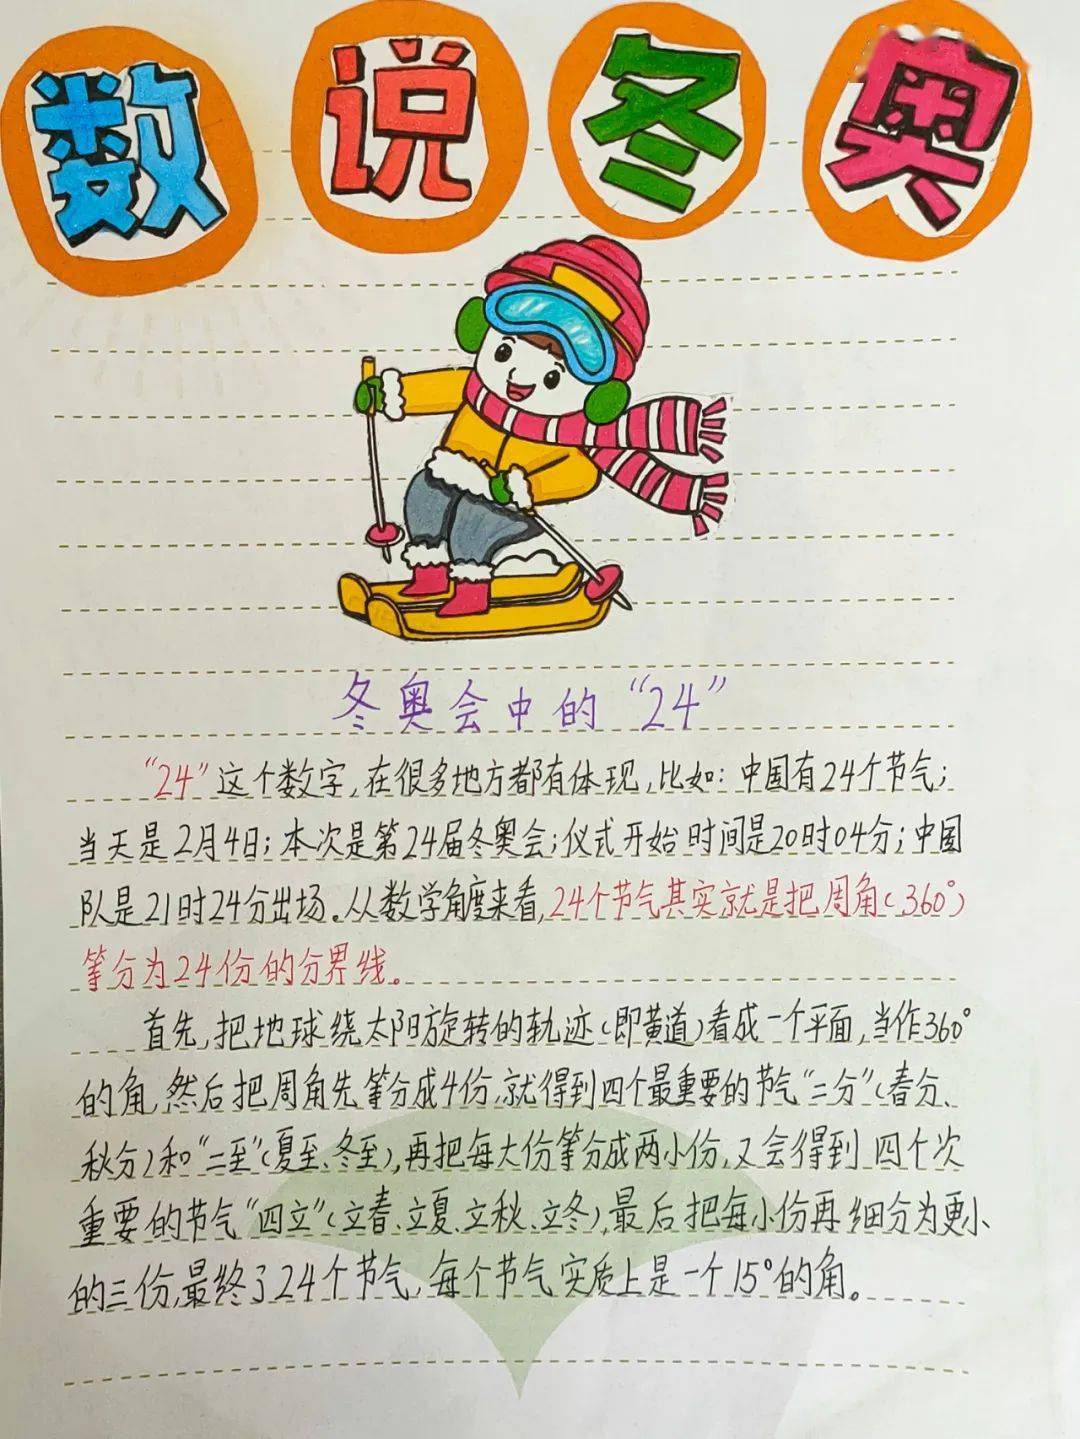 数说冬奥
冬奥会中的“24”
“24”这个数字,在很多地方都有体现,比如:中国有24个节气;
当天是2月4日;本次是第24届冬奥会;仪式开始时间是20时04分;中国
队是21时24分出场。从数学角度来看,24个节气其实就是把周角(360°)
等分为24份的分界线。
首先,把地球绕太阳旋转的轨迹(即黄道)看成一个平面,当作360°
的角,然后把周角先等分成4份,就得到四个最重要的节气“二分”(春分、
秋分)和“二至”(夏至、冬至),再把每大份等分成两小份,又会得到四个次
重要的节气“四立”(立春、立夏、立秋、立冬),最后把每小份再细分为更小
的三份,最终了24个节气,每个节气实质上是一个15°的角。